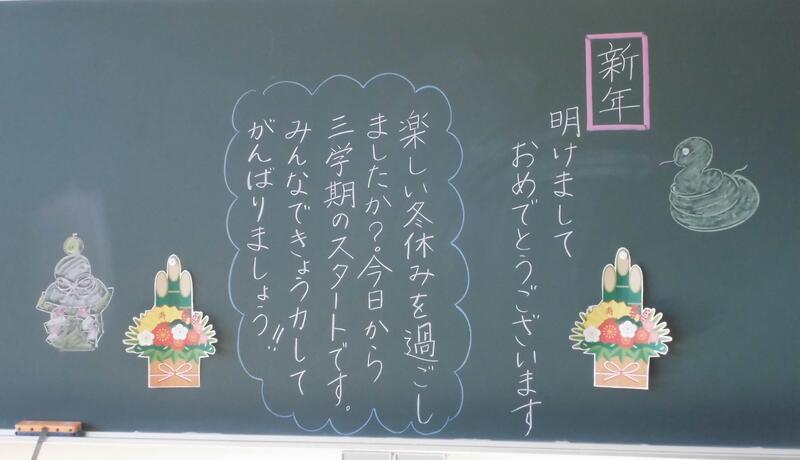 新年
明けまして
おめでとうございます
楽しい冬休みを過ごし
ましたか？。今日から
三学期のスタートです。
みんなできょう力して
がんばりましょう!!
寿
寿